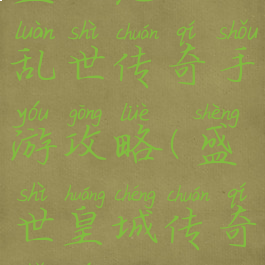 luàn shì chuán qí shǒu
乱世传奇手
yóu gōng lüè shèng
游攻略(盛
shì huáng chéng chuán qí
世皇城传奇